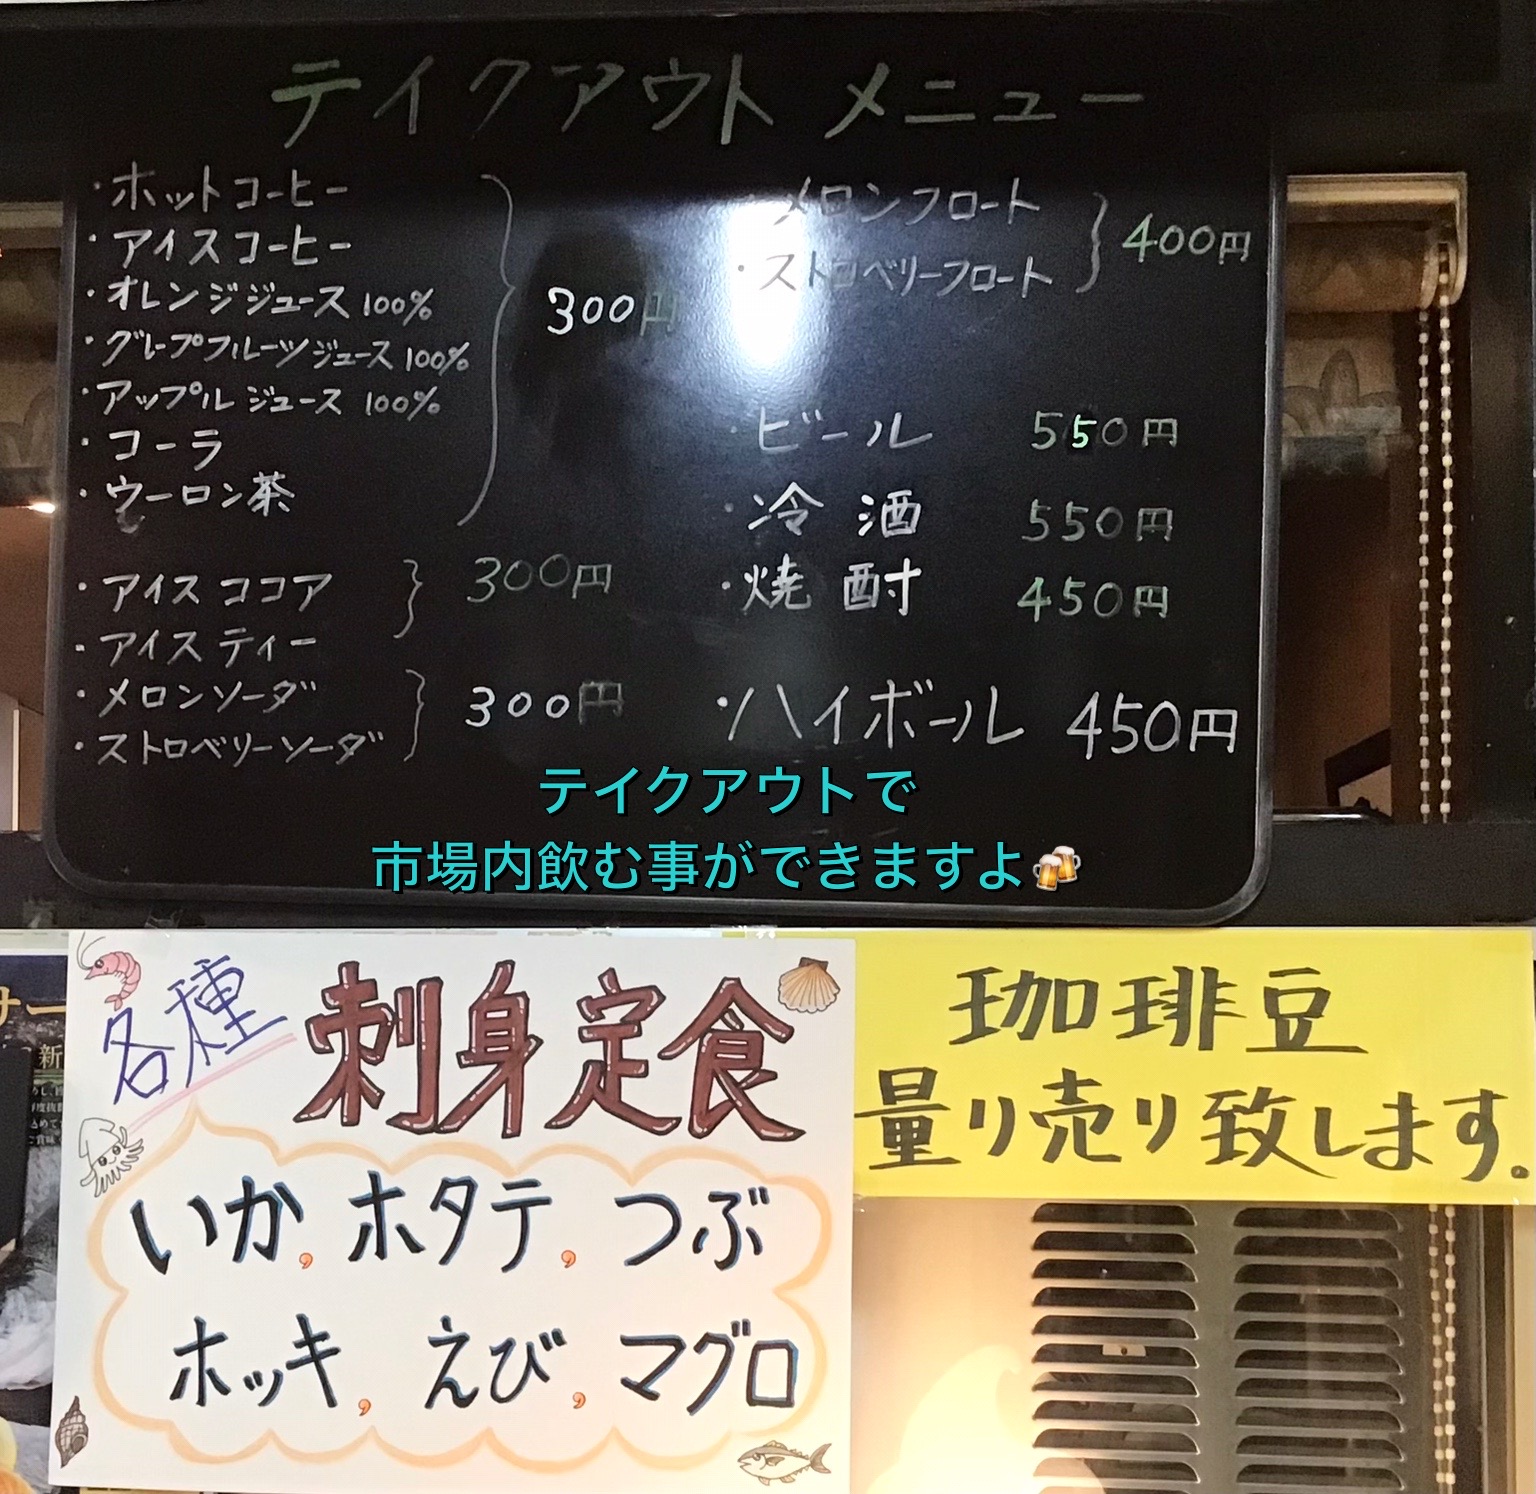 テイクアウト メニュー
・ホットコーヒー
・アイスコーヒー
・オレンジジュース 100%
・グレープフルーツジュース 100%
・アップルジュース 100%
・コーラ
・ウーロン茶
300円
・アイスココア
・アイスティー
300円
・メロンソーダ
・ストロベリーソーダ
300円
メロンフロート
・ストロベリーフロート
400円
・ビール 550円
・冷酒 550円
・焼酎 450円
・ハイボール 450円
テイクアウトで
市場内飲む事ができますよ🍻
各種 刺身定食
いか,ホタテ,つぶ
ホッキ,えび,マグロ
珈琲豆
量り売り致します。
サー
新